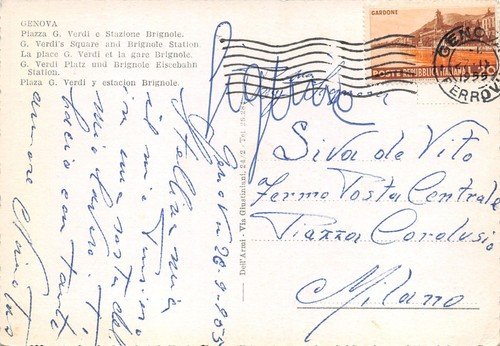 GENOVA
Piazza G. Verdi e Stazione Brignole.
G. Verdi's Square and Brignole Station.
La place G. Verdi et la gare Brignole.
G. Verdi Platz und Brignole Eisebahn
Station.
Plaza G. Verdi y estacion Brignole.
GARDONE
POSTE REPUBBLICA ITALIANA
GENOVA
FERROV
Dell'Armi - Via Giustiniani, 24/2 - Tel.
Genova 28-9-953
Stellina mia
il mio pensiero
in una sosta del
mio lavoro. Ti
bacio con tanto
amore
Siva de Vito
Fermo Posta Centrale
Piazza Cordusio
Milano